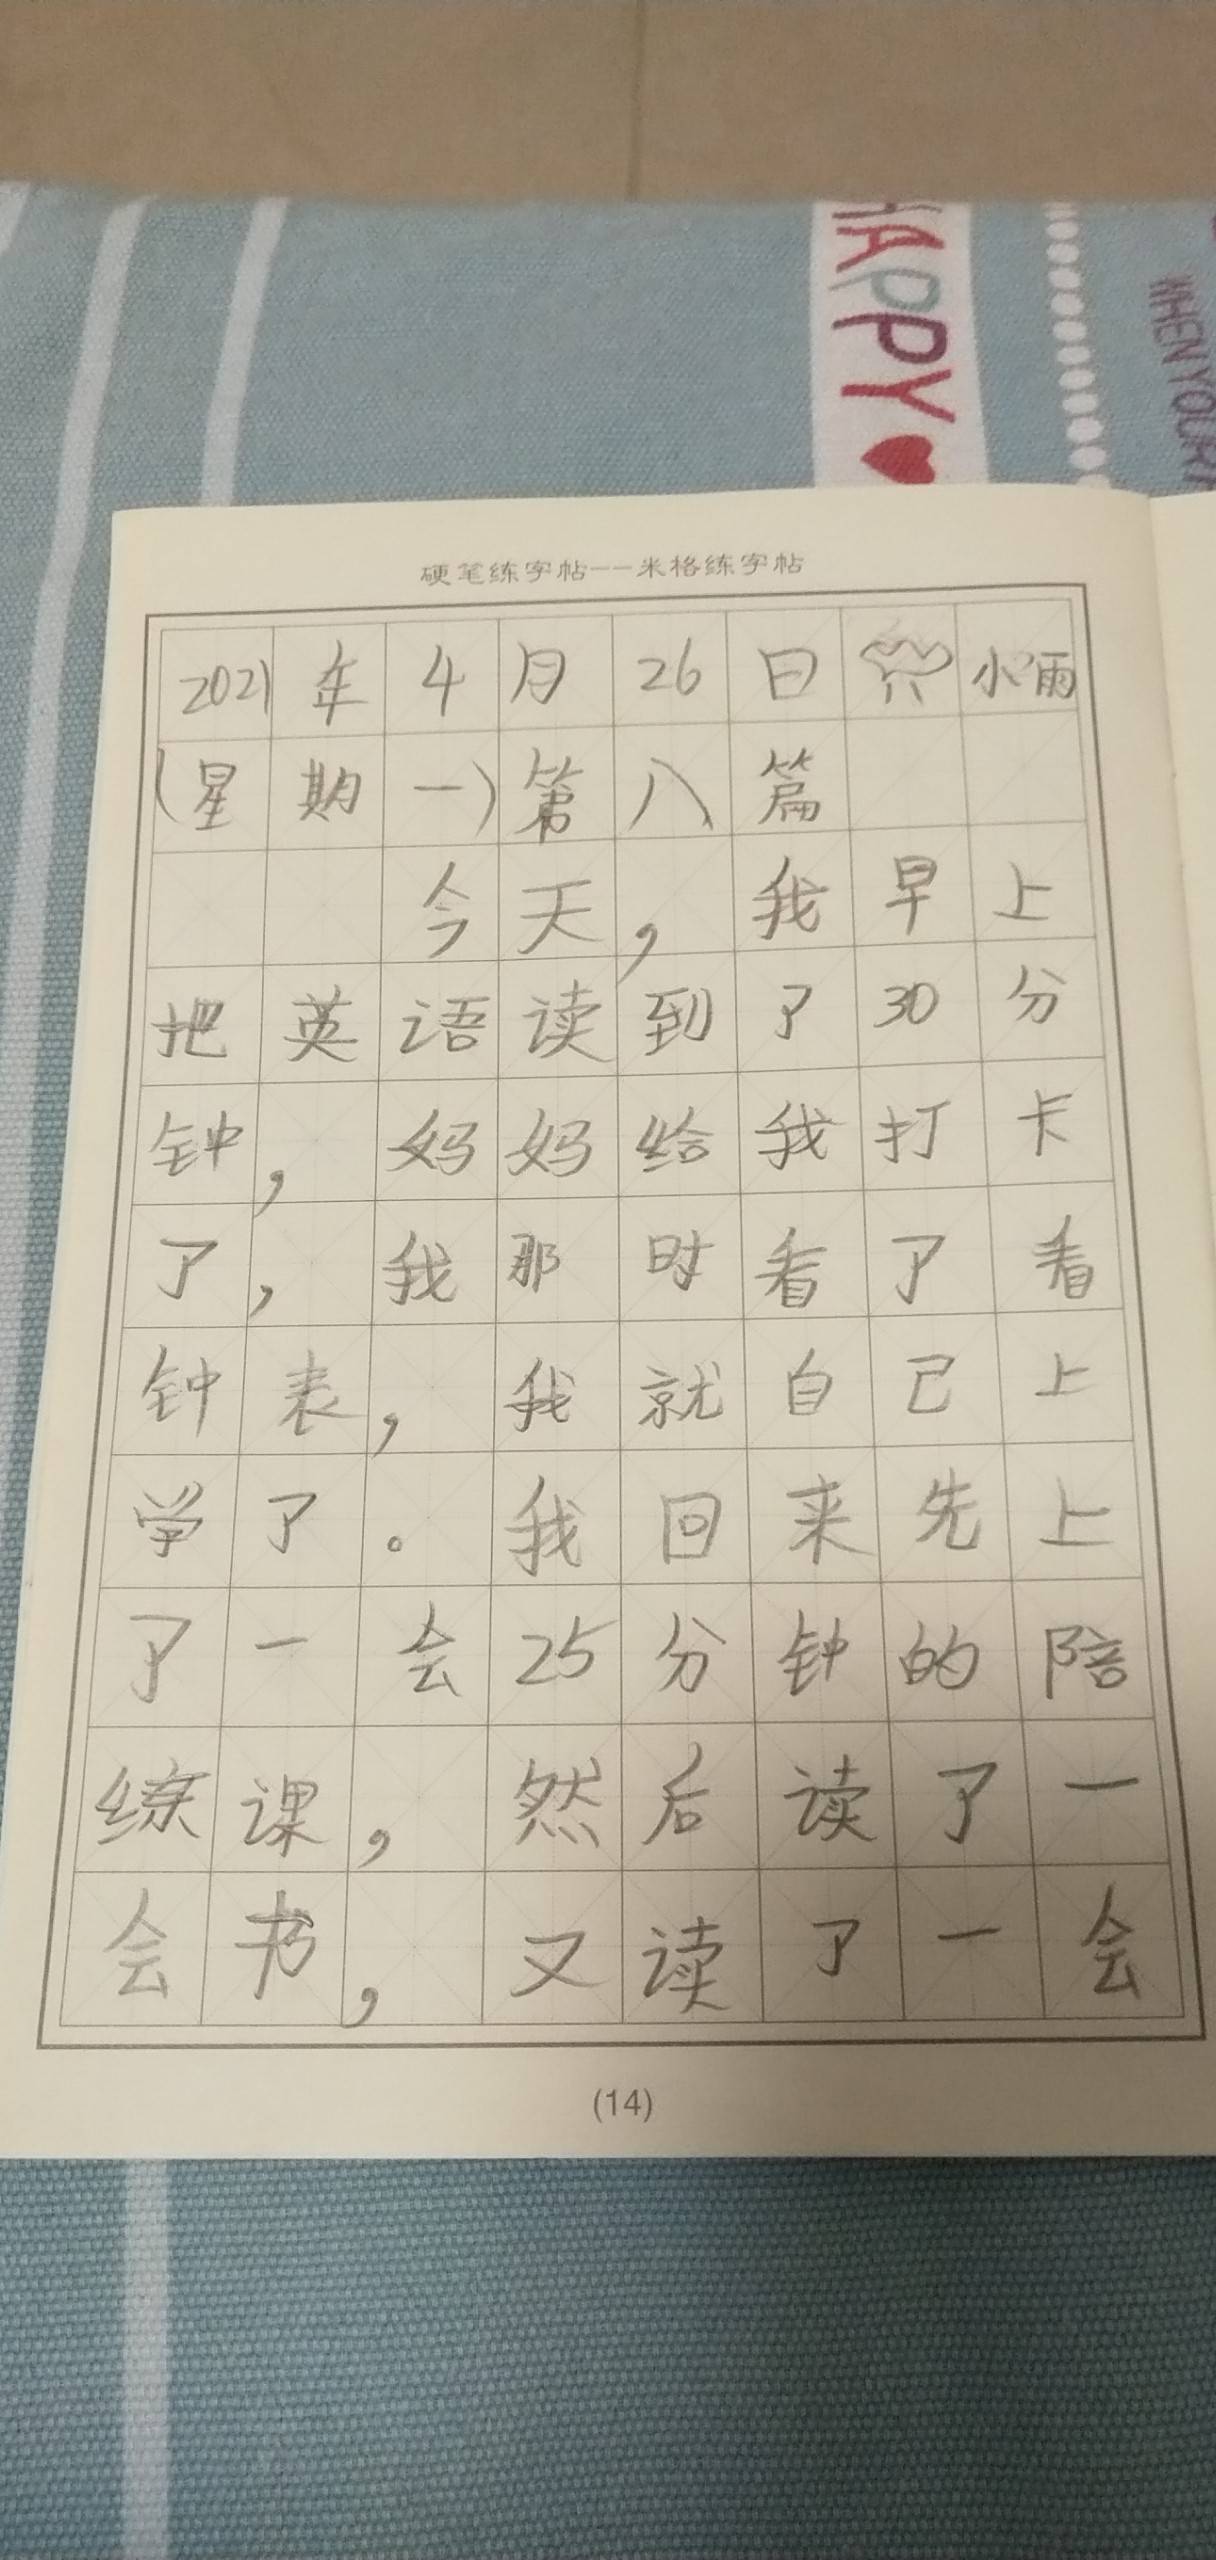 HAPPY
WHEN YOUR
硬笔练字帖——米格练字帖
2021年4月26日 小雨
(星期一)第八篇
今天，我早上
地英语读到了30分
钟，妈妈给我打卡
了，我那时看了看
钟表，我就自己上
学了。我回来先上
了一会25分钟的陪
练课，然后读了一
会书，又读了一会
(14)